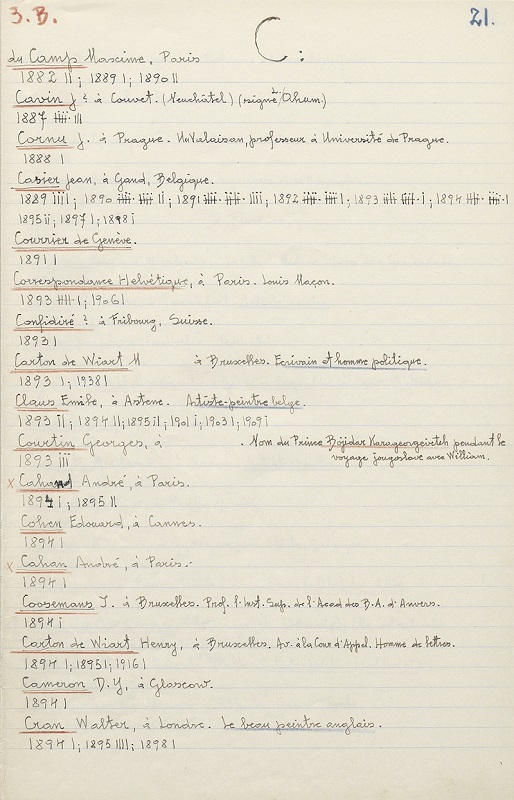 3. B.
C:
21.
du Camp Maxime, Paris
1882 II ; 1889 I ; 1890 II
Cavin J ? à Couvet. (Neuchâtel) (signé
1887 IIII III
Cornu J. à Prague. Un Valaisan, professeur à Université de Prague.
1888 I
Casier Jean, à Gand, Belgique.
1889 IIII ; 1890 ; 1891 ; 1892 ; 1893 ; 1894
1895 II ; 1897 I ; 1898 I
Courrier de Genève.
1891 I
Correspondance Helvétique, à Paris. Louis Maçon.
1893 IIII I ; 1906 I
Confidiré ? à Fribourg, Suisse.
1893 I
Carton de Wiart H à Bruxelles. Ecrivain et homme politique.
1893 I ; 1938 I
Claus Emile, à Astene. Artiste-peintre belge.
1893 II ; 1894 II ; 1895 II ; 1901 I ; 1903 I ; 1909 I
Courtin Georges, à . Nom du Prince Bojidar Karageorgevitch pendant le
1893 III voyage jougoslave avec William.
x Cahand André, à Paris.
1894 I ; 1895 II
Cohen Edouard, à Cannes.
1894 I
x Cahan André, à Paris.
1894 I
Coosemans J. à Bruxelles. Prof. l'Inst. Sup. de l'Acad des B.A. d'Anvers.
1894 I
Carton de Wiart Henry, à Bruxelles. Av. à la Cour d'Appel. Homme de lettres.
1894 I ; 1895 I ; 1916 I
Cameron D. Y, à Glascow.
1894 I
Cran Walter, à Londre. Le beau peintre anglais.
1894 I ; 1895 IIII ; 1898 I